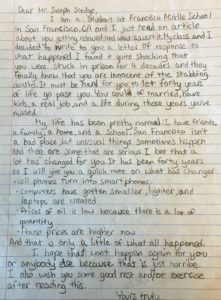 Dear Mr. Joseph Sledge,
I am a student at Francisco Middle School
in San Francisco, CA and I just read an article
about you getting released and
decided to write to you a letter of response to
what happened. I found it quite shocking that
you were stuck in prison for 4 decades and they
finally know that you are innocent of the stabbing
deaths. It must be hard for you to let forty years
of life go past. You could of married, have
kids, a real job, and a life during those years you've
missed.
My life has been pretty normal. I have friends,
a family, a home, and a school. San Francisco isn't
a bad place but unusual things sometimes happen
and there are some that are serious. I bet that a
lot has changed for you. It has been forty years
so I will give you a quick note on what has changed
• Cell phones turn into smart phones.
• Computers have gotten smaller, lighter, and
laptops are created
• Prices of oil is low because there is a lot of
quantity
• House prices are higher now
And that is only a little of what all happened.
I hope that won't happen again for you
or anybody else because that is just horrible.
I also wish you some good rest and/or exercise
after reading this.
Yours truly